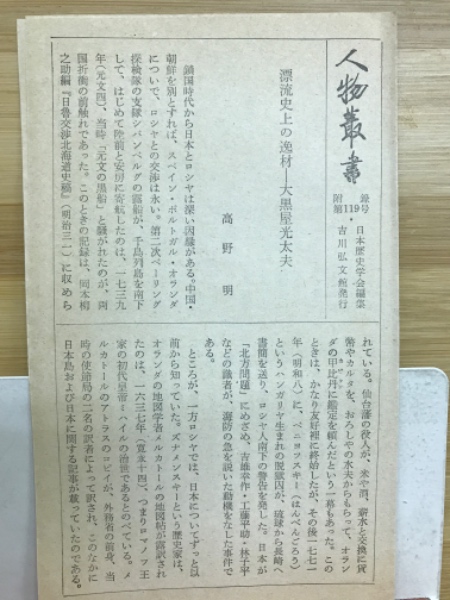 人物叢書
附録
第119号
日本歴史学会編集
吉川弘文館発行
漂流史上の逸材―大黒屋光太夫
高野明
鎖国時代から日本とロシヤは深い因縁がある。中国・
朝鮮を別とすれば、スペイン・ポルトガル・オランダ
についで、ロシヤとの交渉は永い。第二次ベーリング
探検隊の支隊シパンベルグの露船が、千島列島を南下
して、はじめて陸前と安房に寄航したのは、一七三九
年(元文四)、当時「元文の黒船」と騒がれたのが、両
国折衝の前触れであった。このときの記録は、岡本柳
之助編『日魯交渉北海道史稿』(明治三一)に収めら
れている。仙台藩の役人が、米や酒、薪水と交換に貨
幣やカルタを、おろしやの水夫からもらって、オラン
ダの甲比丹に鑑定を頼んだという一幕もあった。この
ときは、かなり友好裡に終始したが、その後一七七一
年(明和八)に、ベニヨフスキー(はんべんごろう)
というハンガリヤ生まれの脱獄囚が、琉球から長崎へ
書簡を送り、ロシヤ人南下の警告を発した。日本が
「北方問題」にめざめ、吉雄幸作・工藤平助・林子平
などの識者が、海防の急を説いた動機をなした事件で
ある。
ところが、一方ロシヤでは、日本についてずっと以
前から知っていた。ズナメンスキーという歴史家は、
オランダの地図学者メルカトールの地図帖が露訳され
たのは、一六三七年(寛永十四)、つまりロマノフ王
家の初代皇帝ミハイルの治世であるとのべている。メ
ルカトールのアトラスのコピイが、外務省の前身、当
時の使節局の二名の訳者によって訳され、このなかに
日本島および日本に関する記事が載っていたのである。